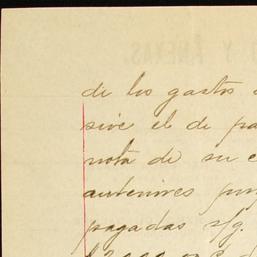 de los gastos
sive el de pa
nota de su c
anteriores pu
pagadas s/g.